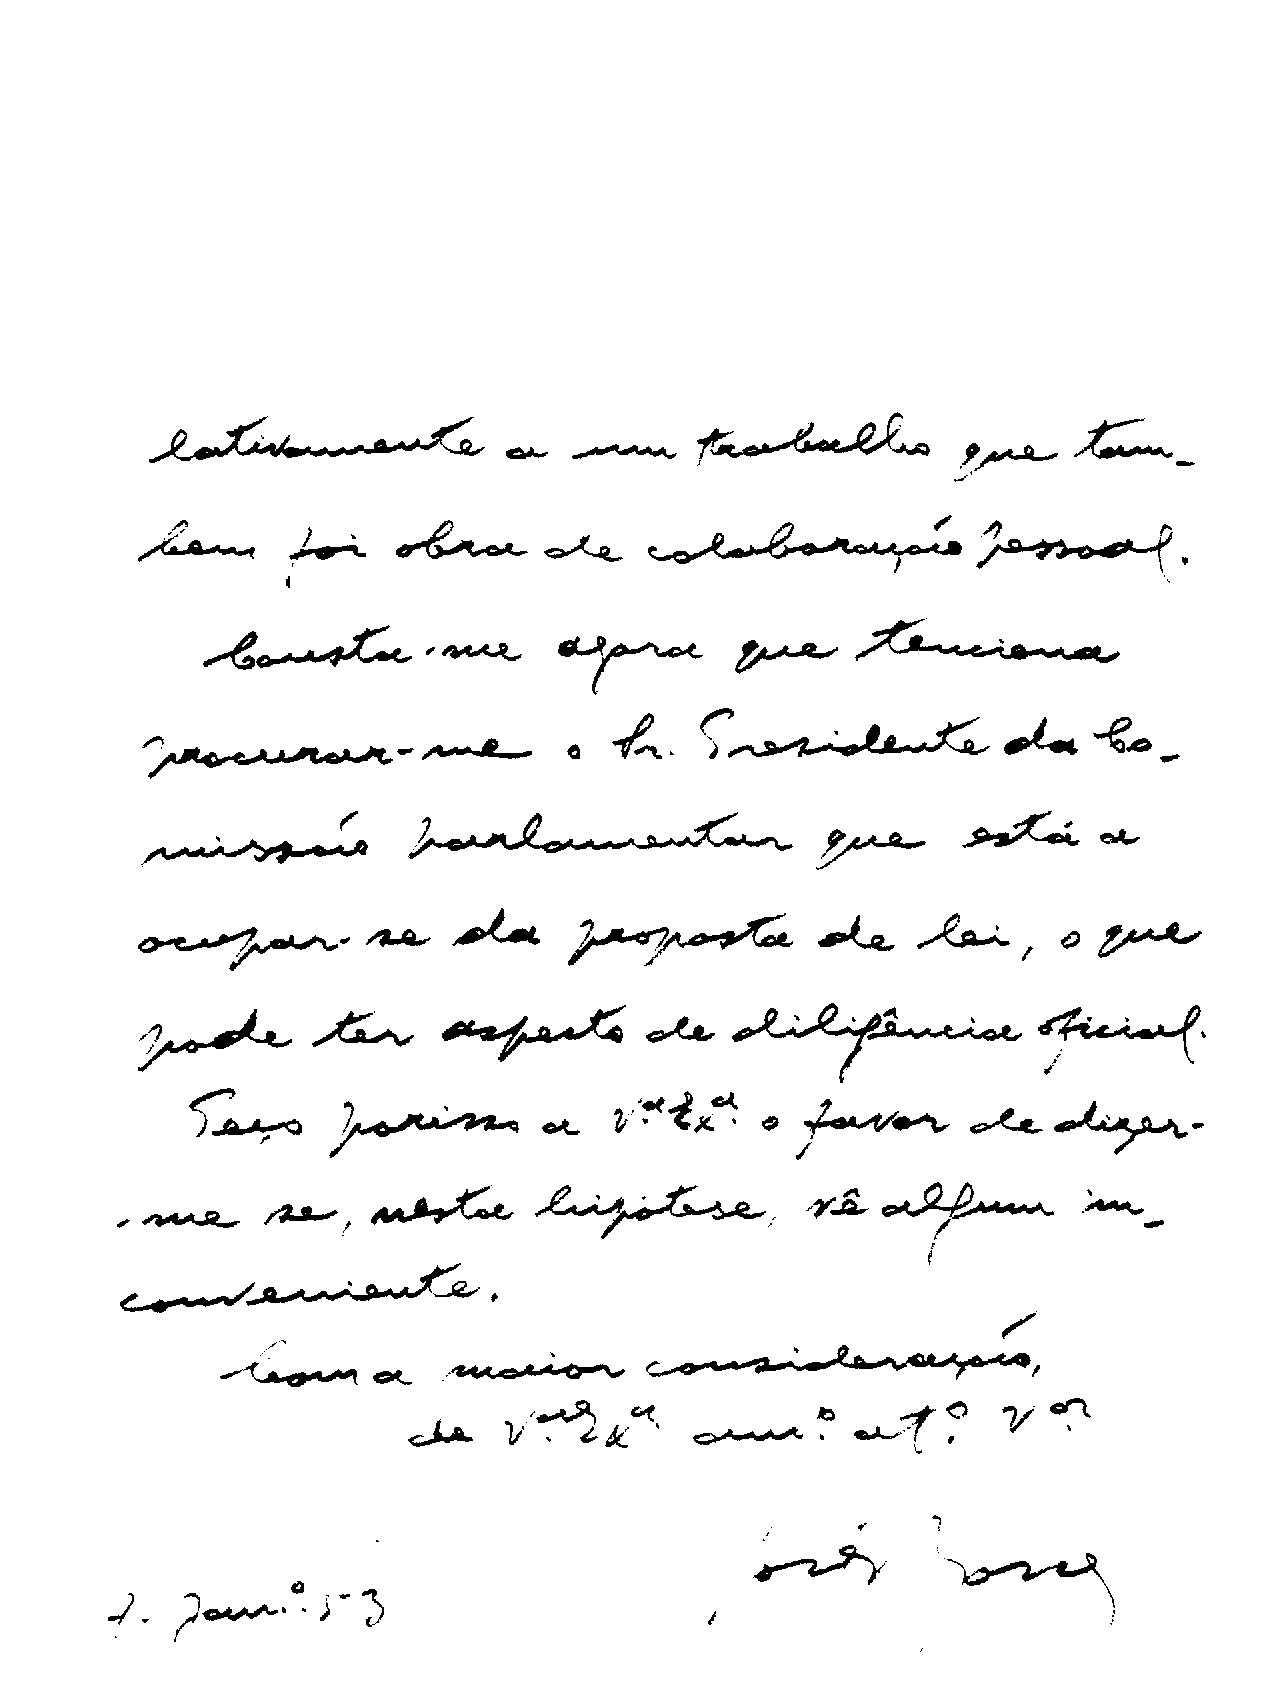 lativamente a um trabalho que tam-
bem foi obra de colaboração pessoal.
Consta-me agora que tenciona
procurar-me o Sr. Presidente da Co-
missão parlamentar que está a
ocupar-se da proposta de lei, o que
pode ter aspecto de diligência oficial.
Peço porisso a V.ª Ex.ª o favor de dizer-
-me se, nesta hipótese, vê algum in-
conveniente.
Com a maior consideração,
de V. Exª am.º at.º V.or
José
Jan.º 53